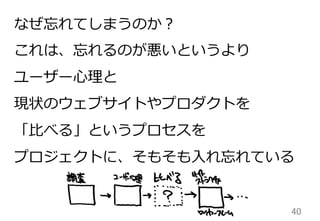 なぜ忘れてしまうのか？
これは、忘れるのが悪いというより
ユーザー心理と
現状のウェブサイトやプロダクトを
「比べる」というプロセスを
プロジェクトに、そもそも入れ忘れている
調査 ユーザー心理 比べる
→ → ? → → …
ワイヤーフレーム
40